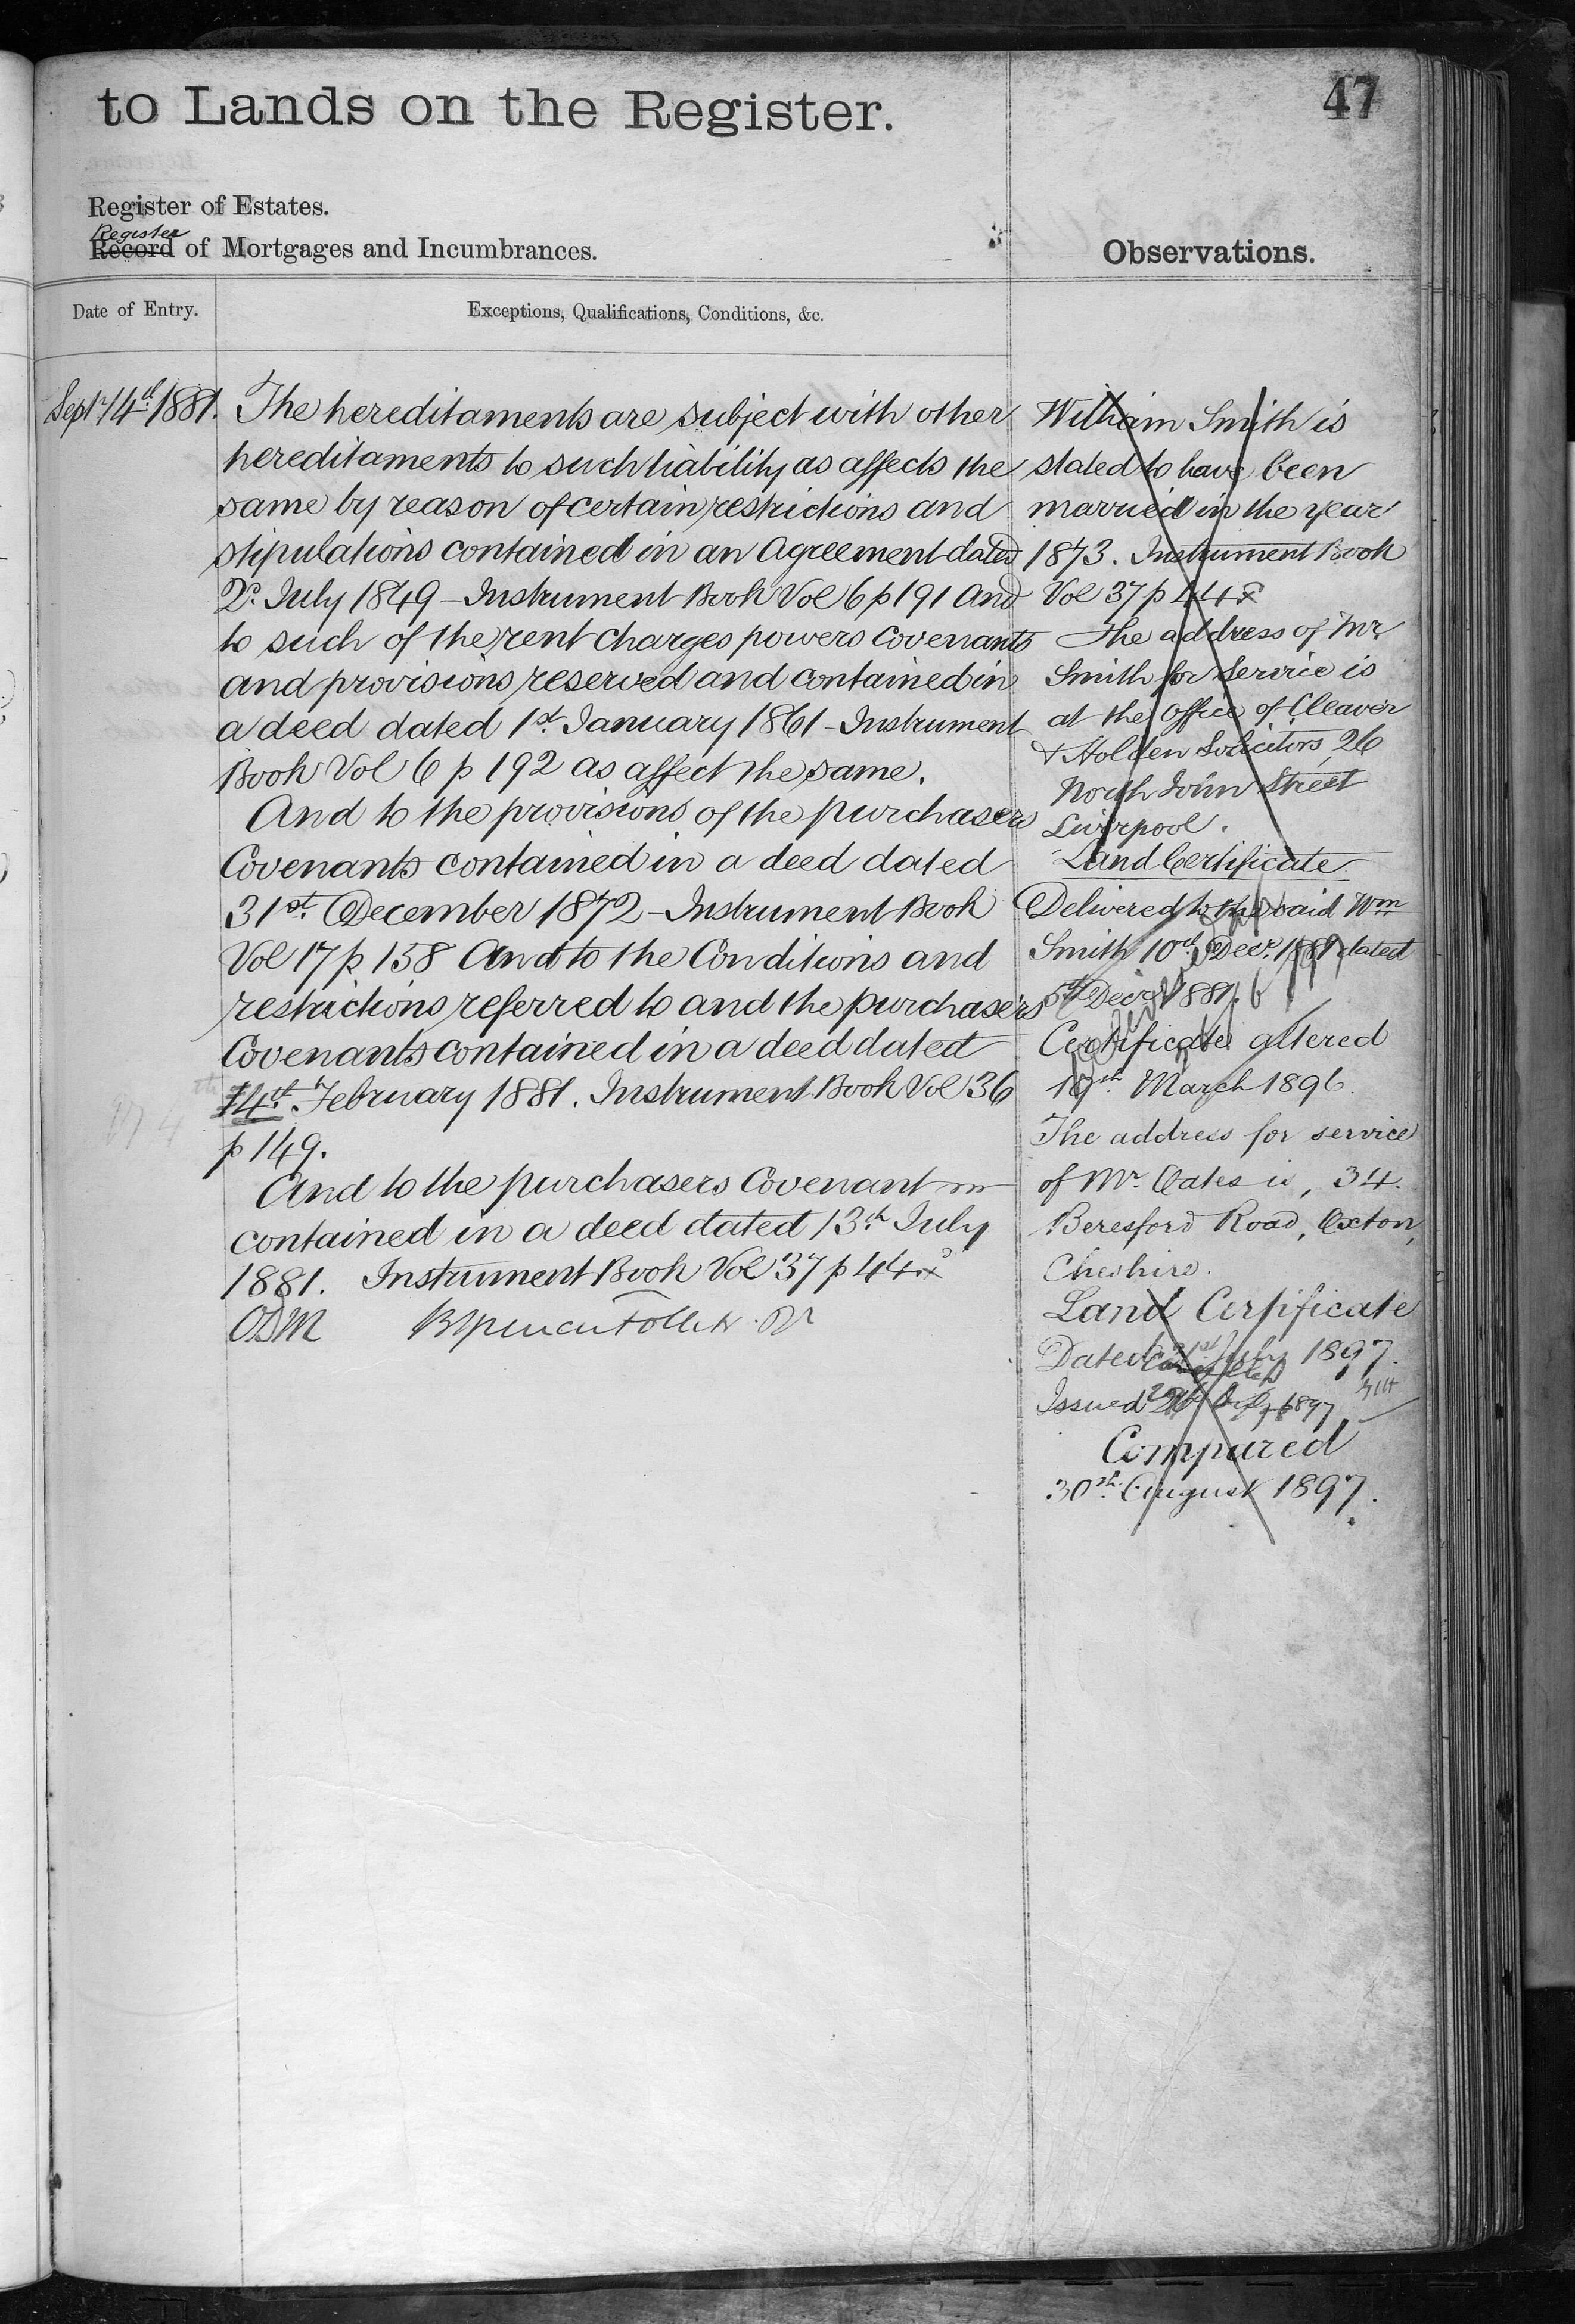 to Lands on the Register.
47
Register of Estates.
Register
Record of Mortgages and Incumbrances.
Observations.
Date of Entry.
Exceptions, Qualifications, Conditions, &c.
Sept 14th 1881.
The hereditaments are subject with other
hereditaments to such liability as affects the
same by reason of certain restrictions and
stipulations contained in an Agreement dated
2d July 1849 - Instrument Book Vol 6 p 191 And
to such of the rent charges powers Covenants
and provisions reserved and contained in
a deed dated 1st January 1861 - Instrument
Book Vol 6 p 192 as affect the same.
And to the provisions of the purchasers
Covenants contained in a deed dated
31st December 1872 - Instrument Book
Vol 17 p 158 And to the Conditions and
restrictions referred to and the purchasers
Covenants contained in a deed dated
14th February 1881. Instrument Book Vol 36
p 149.
And to the purchasers Covenant
contained in a deed dated 13th July
1881. Instrument Book Vol 37 p 44
William Smith is
stated to have been
married in the year
1873. Instrument Book
Vol 37 p 44
The address of Mr
Smith for Service is
at the Office of Cleaver
& Holden Solicitors, 26
North John Street
Liverpool.
Land Certificate
Delivered to the said Wm
Smith 10th Decr. 1881 dated
5th Decr 1881.
Certificate altered
19th March 1896.
The address for service
of Mr. Oates is, 34.
Beresford Road, Oxton,
Cheshire.
Land Certificate
Dated 21st July 1897.
Issued 1897
Compared
30th August 1897.